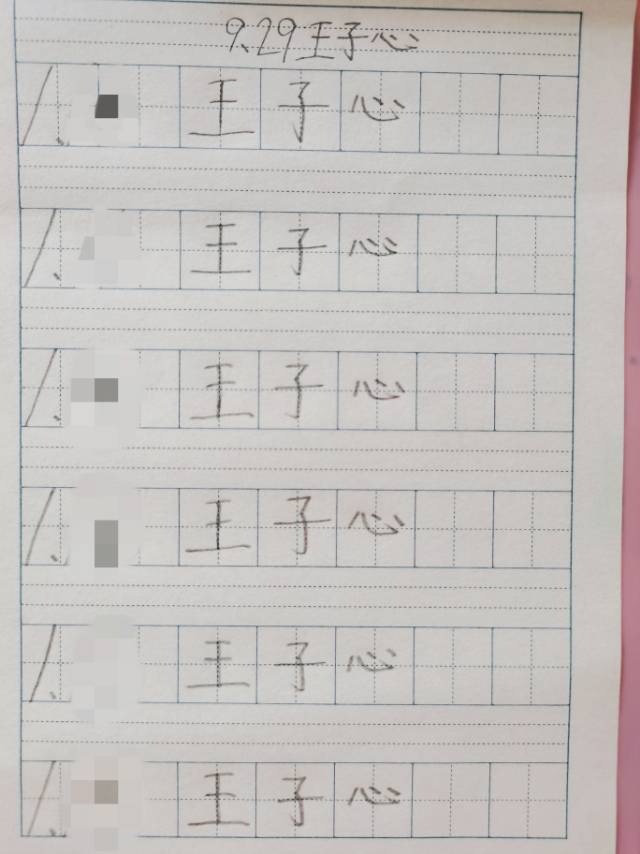 9.29王子心
1. 王子心
1. 王子心
1. 王子心
1. 王子心
1. 王子心
1. 王子心